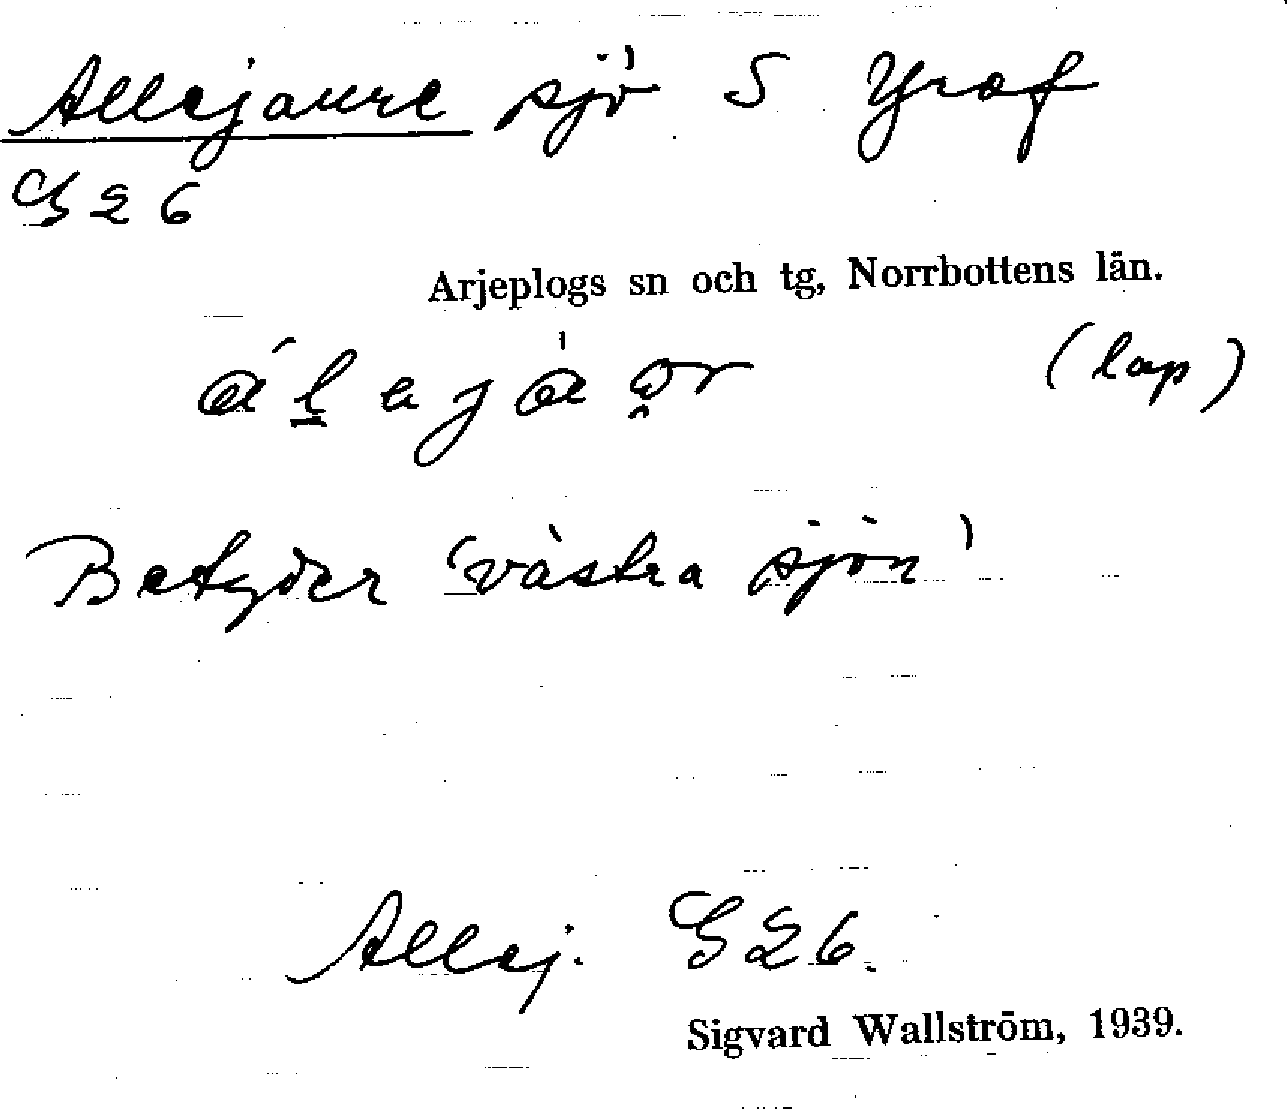 Allejaure sjö S Graf
G 26
Arjeplogs sn och tg, Norrbottens län.
(lap)
Betyder 'västra sjön'
Allej. G 26.
Sigvard Wallström, 1939.